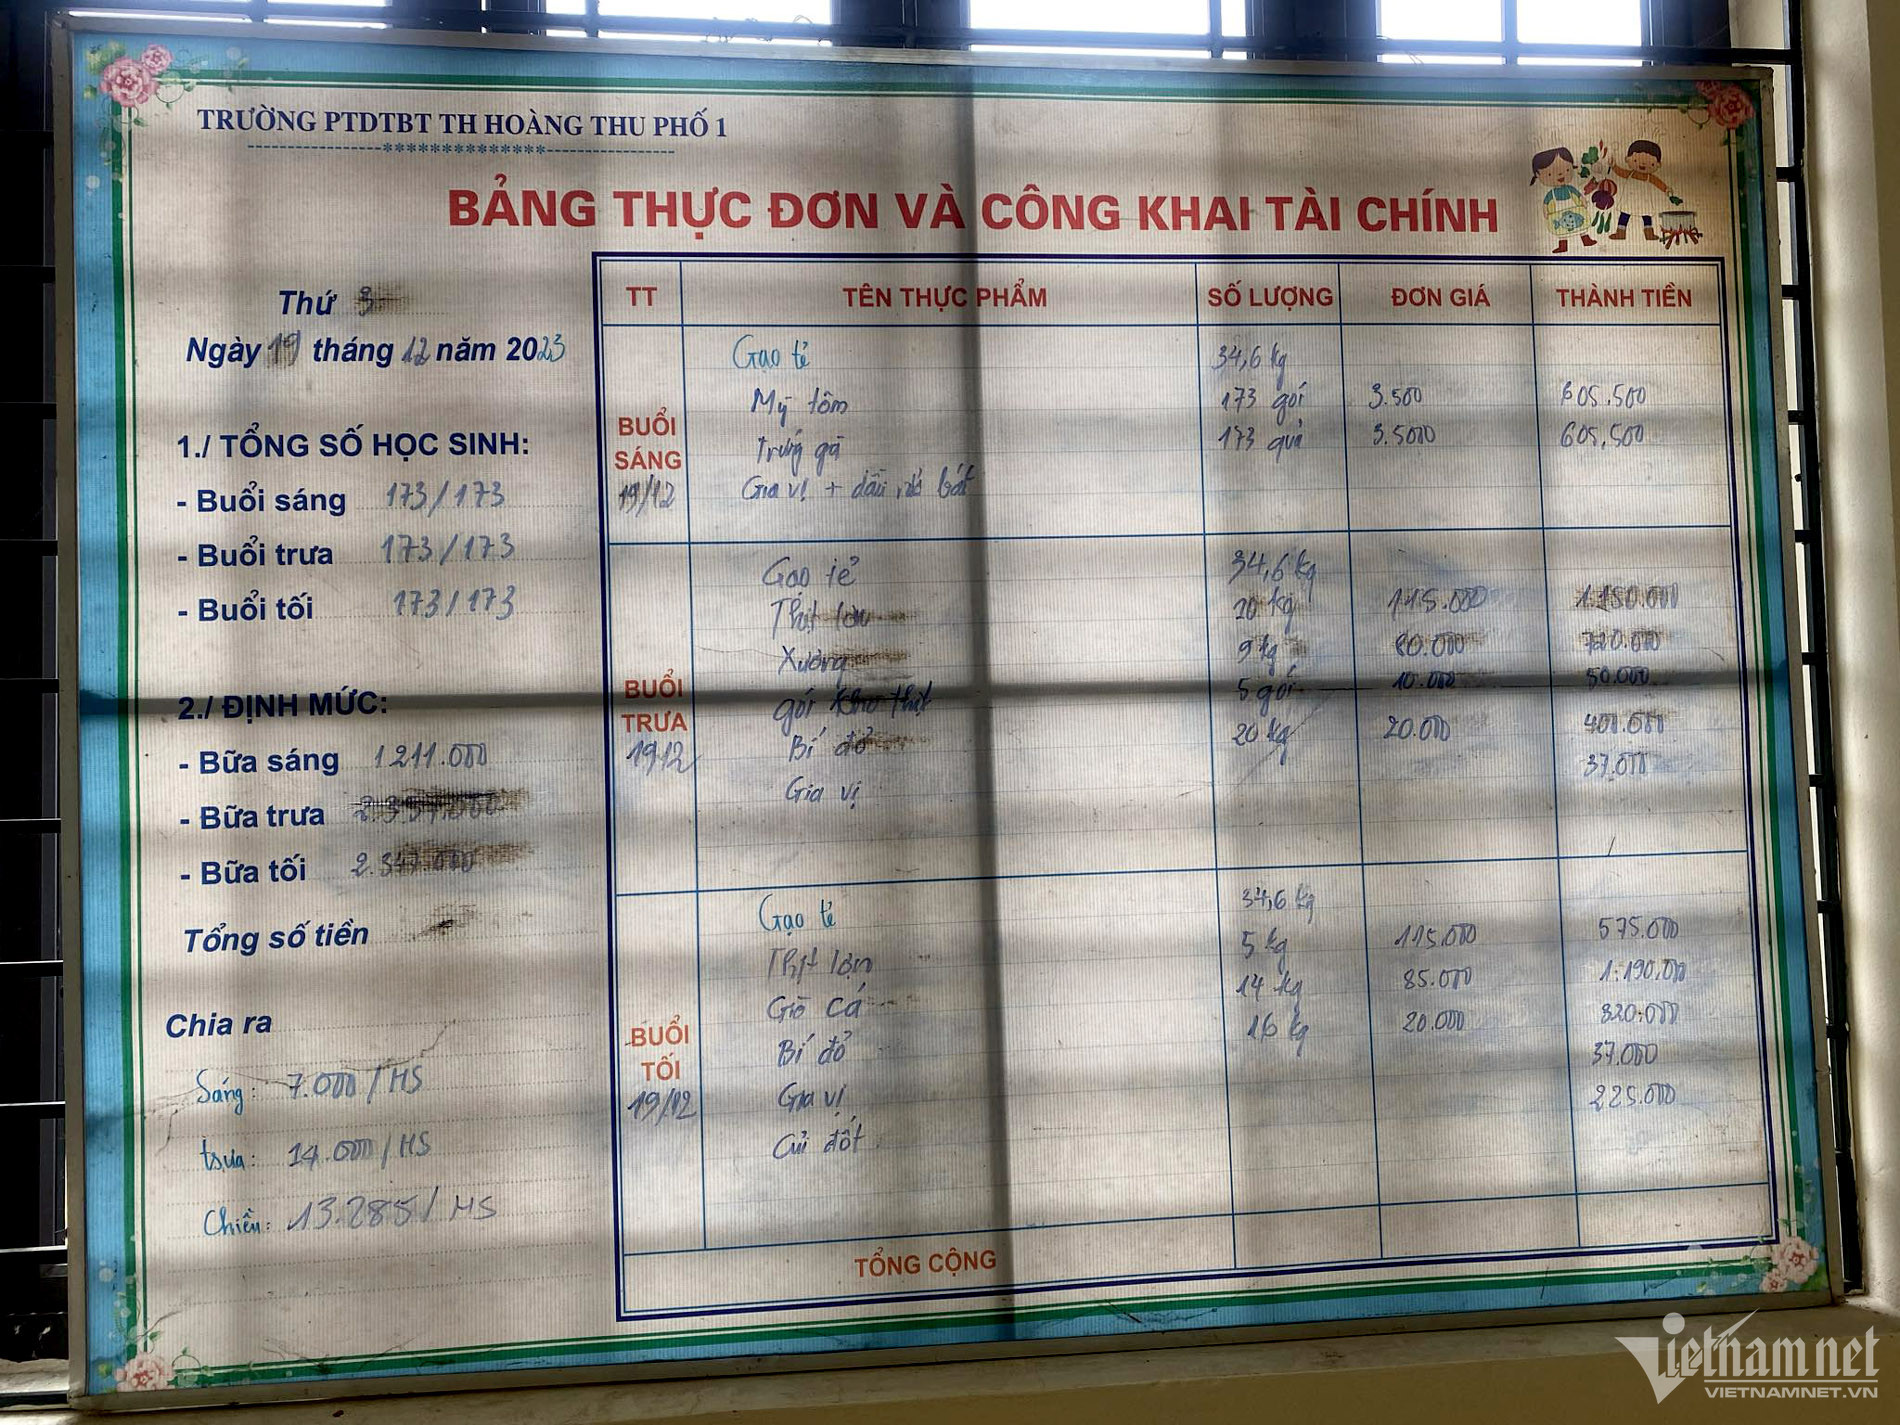 TRƯỜNG PTDTBT TH HOÀNG THU PHỐ 1
----------------**************----------------
BẢNG THỰC ĐƠN VÀ CÔNG KHAI TÀI CHÍNH
Thứ 3
Ngày 19 tháng 12 năm 2023
1./ TỔNG SỐ HỌC SINH:
- Buổi sáng 173/173
- Buổi trưa 173/173
- Buổi tối 173/173
2./ ĐỊNH MỨC:
- Bữa sáng 1211.000
- Bữa trưa
- Bữa tối 2.347.000
Tổng số tiền
Chia ra
Sáng: 7.000/HS
trưa: 14.000/HS
Chiều: 13.285/HS
TT TÊN THỰC PHẨM SỐ LƯỢNG ĐƠN GIÁ THÀNH TIỀN
BUỔI SÁNG 19/12
Gạo tẻ 34,6 kg
Mỳ tôm 173 gói 3.500 605.500
Trứng gà 173 quả 3.5000 605,500
Gia vị + dầu rửa bát
BUỔI TRƯA 19/12
Gạo tẻ 34,6 kg
Thịt lợn 20 kg 115.000
Xương 9 kg 80.000 720.000
gói kho thịt 5 gói 10.000 50.000
Bí đỏ 20 kg 20.000 400.000
Gia vị 37.000
BUỔI TỐI 19/12
Gạo tẻ 34,6 kg
Thịt lợn 5 kg 115.000 575.000
Giò cá 14 kg 85.000 1.190.000
Bí đỏ 16 kg 20.000 320.000
Gia vị 37.000
Củi đốt 225.000
TỔNG CỘNG
Vietnamnet
VIETNAMNET.VN